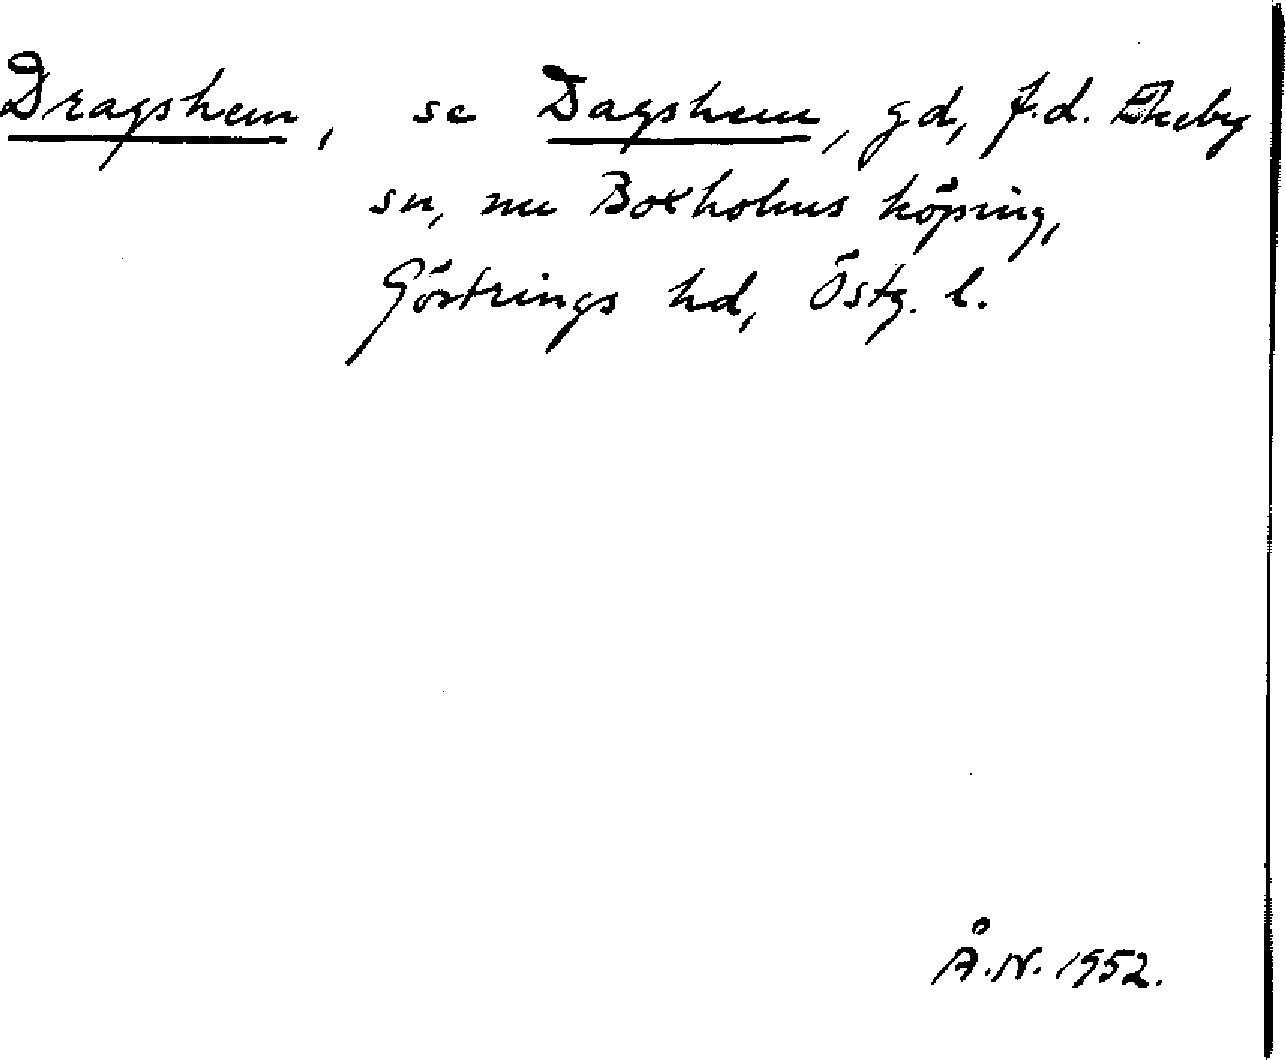 Dragshem, se Dagshem, gd, f.d. Ekeby
sn, nu Boxholms köping,
Göstrings hd, Östg. l.
Å.N. 1952.